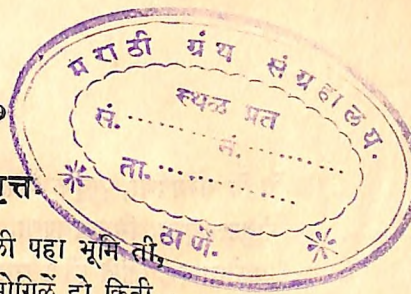 मराठी ग्रंथ संग्रहालय.
स्थळ प्रत
सं. ............ नं. ............
ता. ...............
ठाणें.
की पहा भूमि ती,